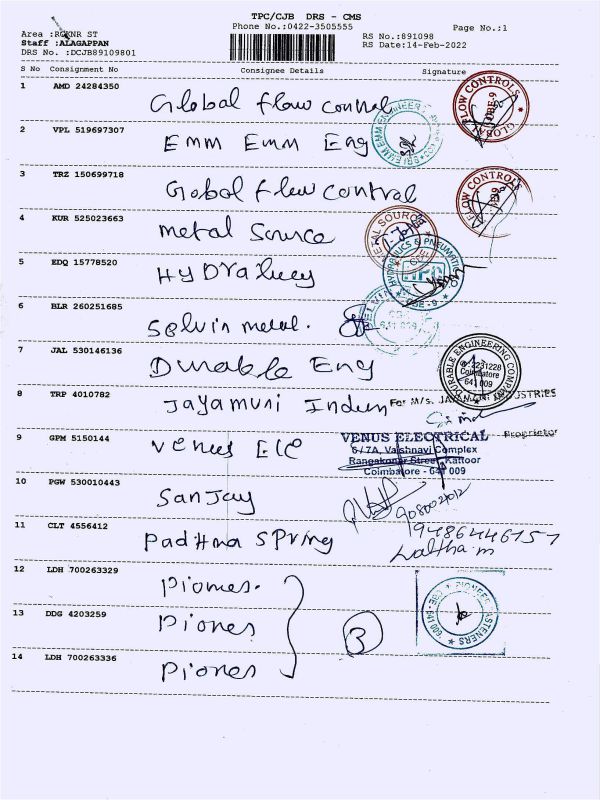 TPC/CJB DRS - CMS
Phone No.:0422-3505555
Page No.:1
Area :RGKNR ST
Staff :ALAGAPPAN
DRS No. :DCJB89109801
RS No.:891098
RS Date:14-Feb-2022
S No Consignment No Consignee Details Signature
1 AMD 24284350 Global flow control
GLOBAL FLOW CONTROLS CBE-9
2 VPL 519697307 Emm Emm Eng
3 TRZ 150699718 Global flow control
FLOW CONTROLS
4 KUR 525023663 metal source
5 EDQ 15778520 Hydraliucy
HYDRAULICS & PNEUMATIC
CBE-9
6 BLR 260251685 Selvin metal.
7 JAL 530146136 Durable Eng
DURABLE ENGINEERING COMPANY
2231228
Coimbatore
641 009
8 TRP 4010782 Jayamuni Indun
For M/s.
Proprietor
9 GPM 5150144 Venus Ele
VENUS ELECTRICAL
6 / 7A, Vaishnavi Complex
Rangakonar Street, Kattoor
Coimbatore - 641 009
10 PGW 530010443 Sanjay
11 CLT 4556412 Padhma Spring
19486446157
Laltha.m
12 LDH 700263329 Piones.
13 DDG 4203259 Piones
3
14 LDH 700263336 Piones
PIONEER FASTENERS